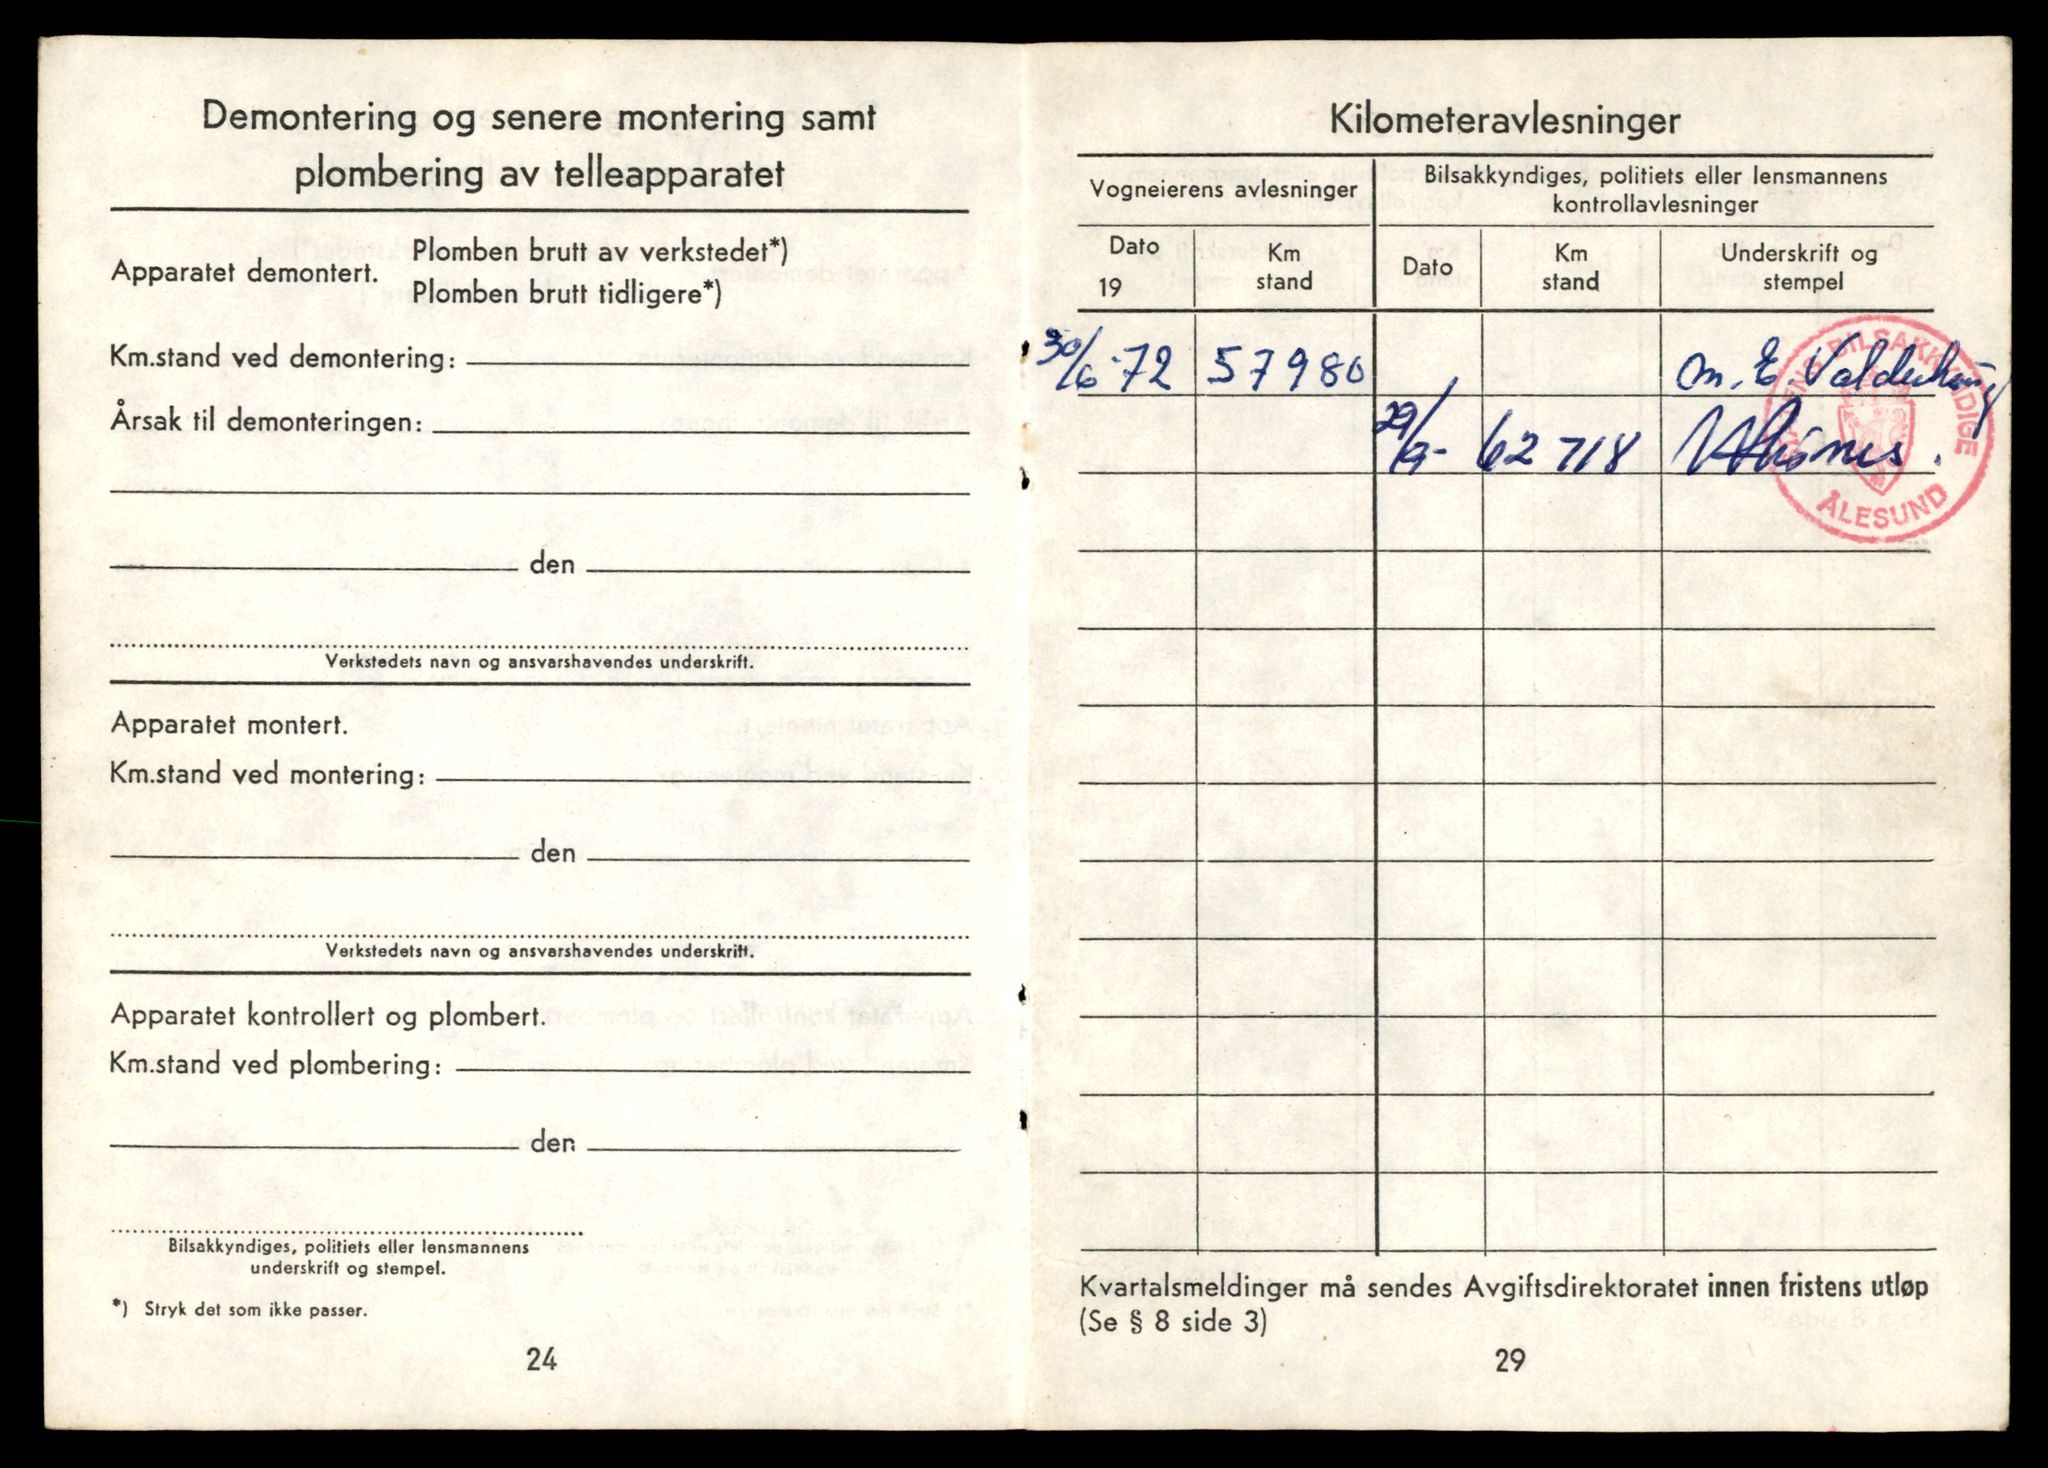 Demontering og senere montering samt
plombering av telleapparatet
Apparatet demontert.
Plomben brutt av verkstedet*)
Plomben brutt tidligere*)
Km.stand ved demontering:
Årsak til demonteringen:
den
Verkstedets navn og ansvarshavendes underskrift.
Apparatet montert.
Km.stand ved montering:
den
Verkstedets navn og ansvarshavendes underskrift.
Apparatet kontrollert og plombert.
Km.stand ved plombering:
den
Bilsakkyndiges, politiets eller lensmannens
underskrift og stempel.
*) Stryk det som ikke passer.
24
Kilometeravlesninger
Vogneierens avlesninger
Bilsakkyndiges, politiets eller lensmannens
kontrollavlesninger
Dato
19
Km
stand
Dato
Km
stand
Underskrift og
stempel
30/6-72 57980 M. E. Valderhaug
29/9- 62718
BILSAKKYNDIGE
ÅLESUND
Kvartalsmeldinger må sendes Avgiftsdirektoratet innen fristens utløp
(Se § 8 side 3)
29